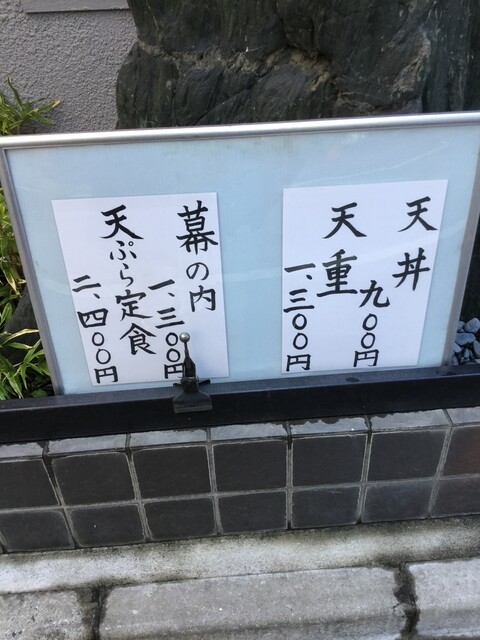 天丼
九〇〇円
天重
一、三〇〇円
幕の内
一、三〇〇円
天ぷら定食
二、四〇〇円